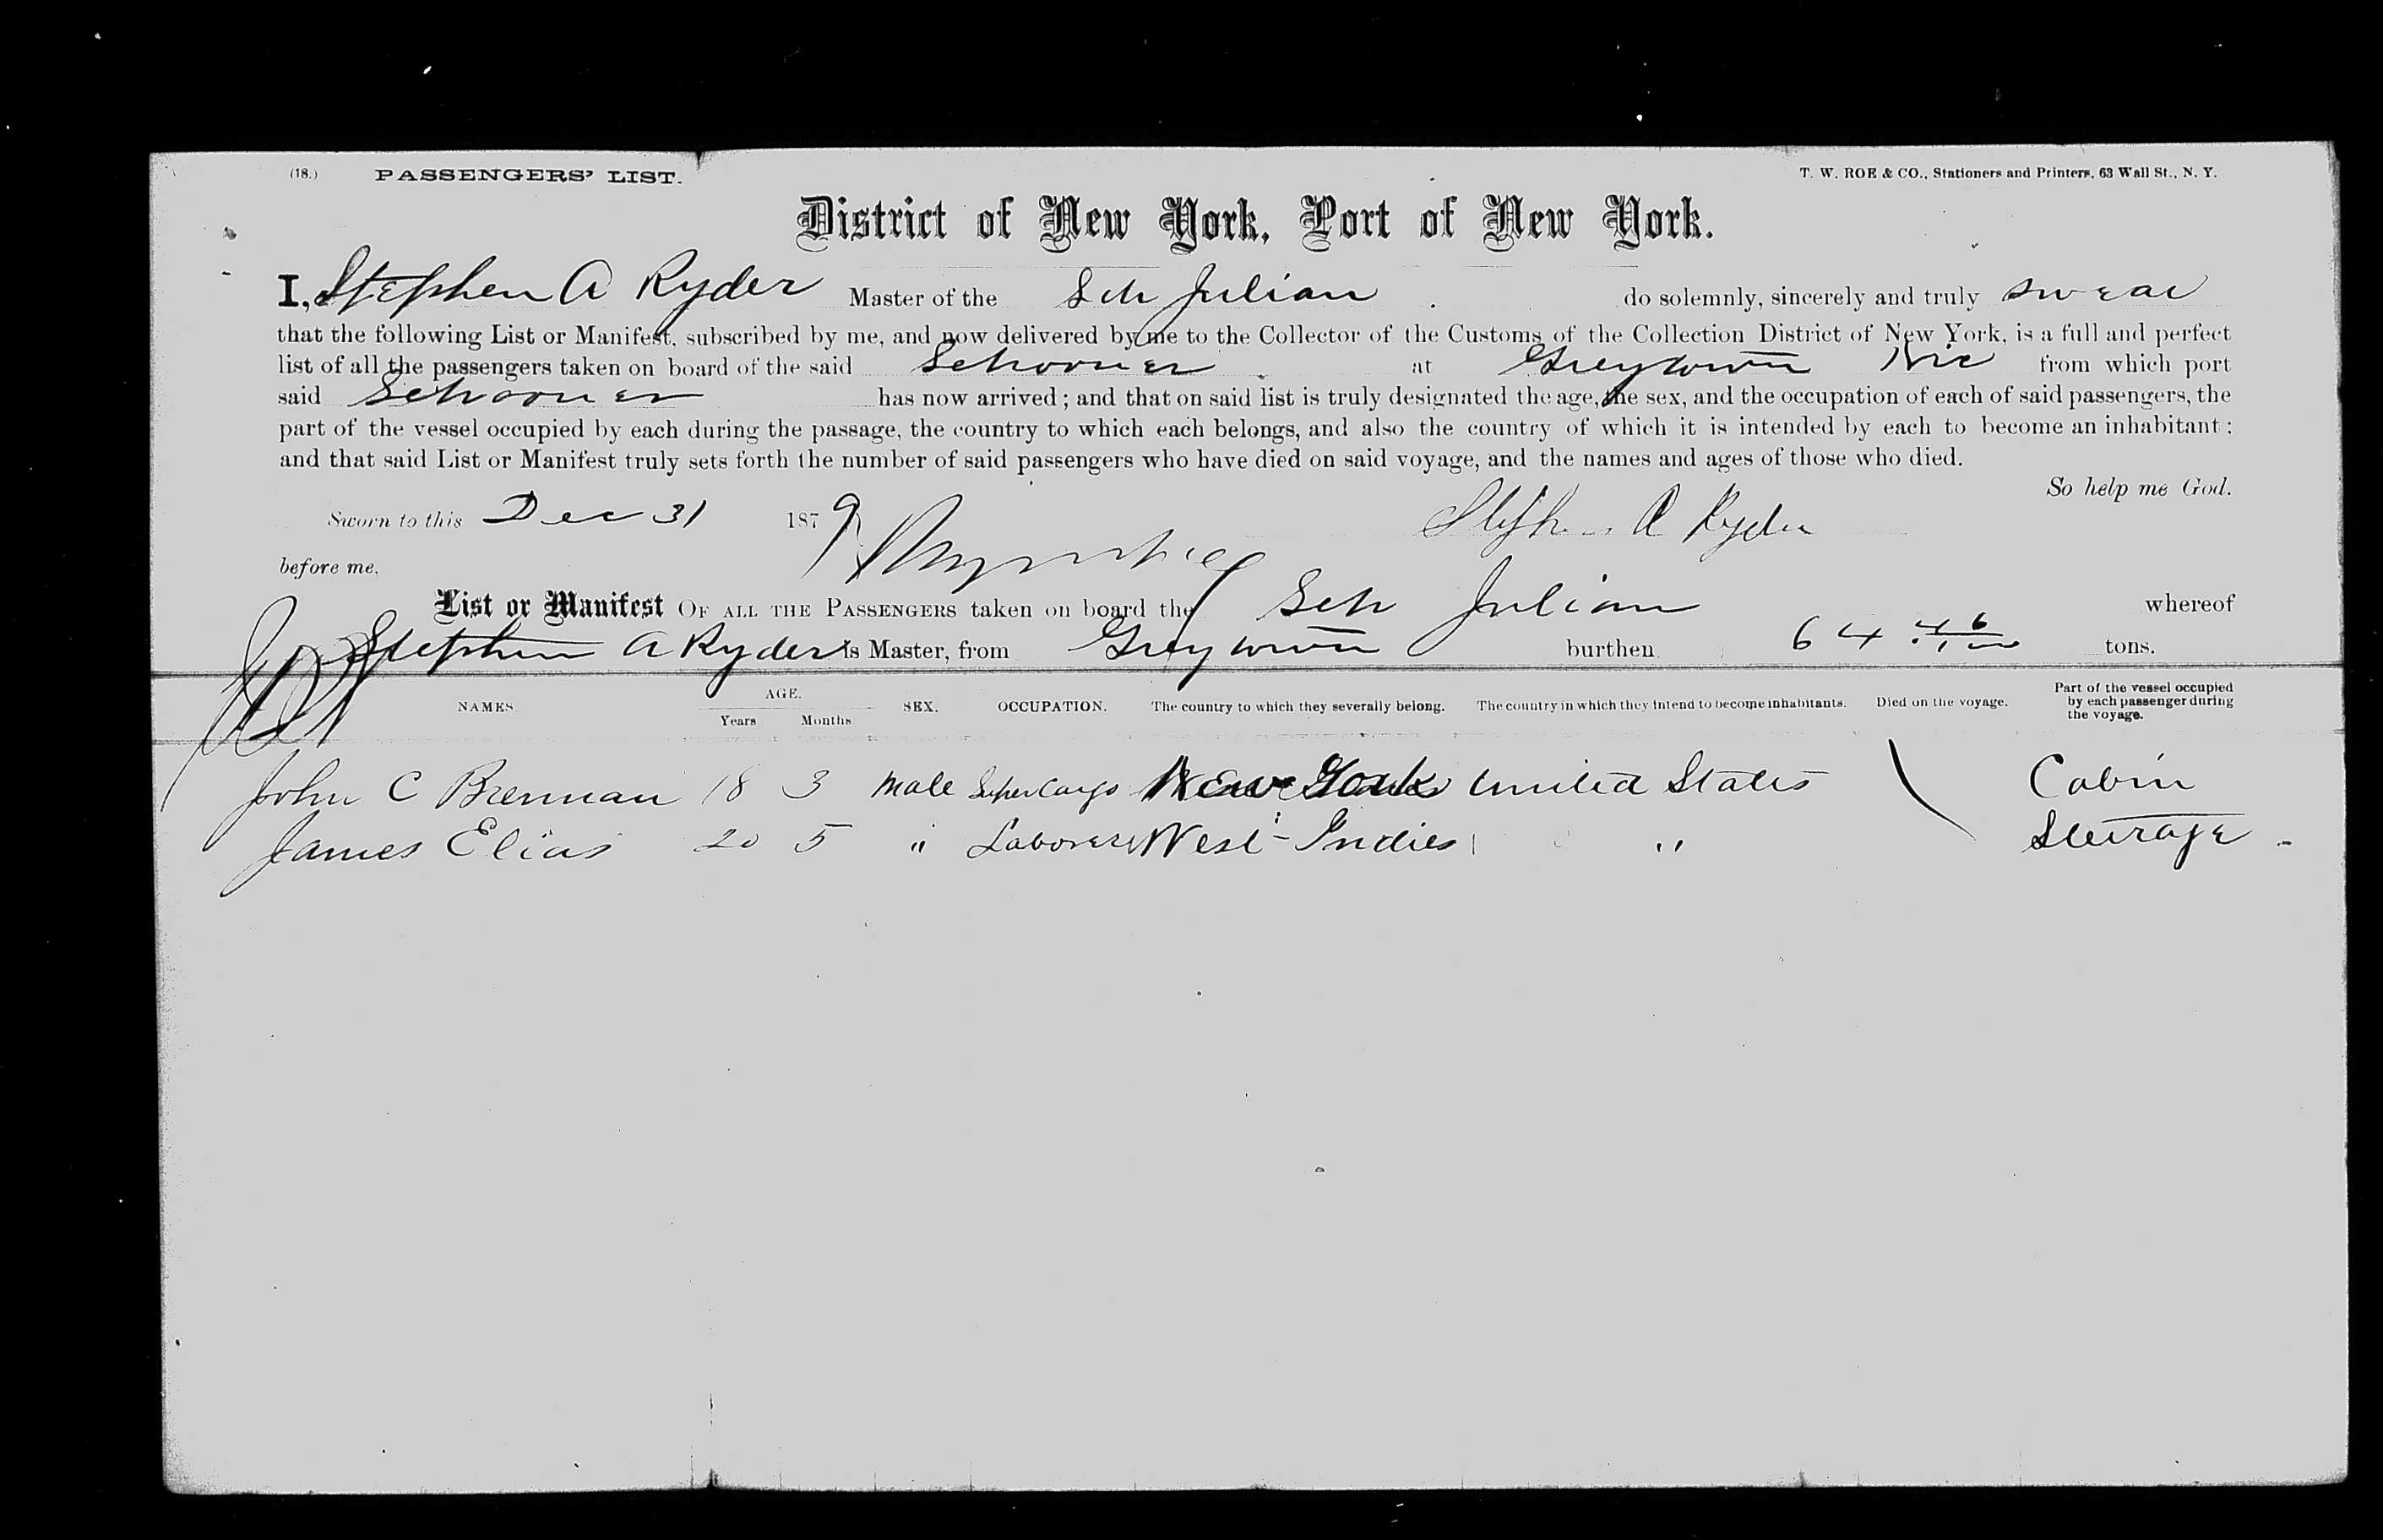 (18.) PASSENGERS' LIST. T. W. ROE & CO., Stationers and Printers, 63 Wall St., N. Y.
District of New York, Port of New York.
I, Stephen A Ryder Master of the Sch Julian do solemnly, sincerely and truly swear
that the following List or Manifest, subscribed by me, and now delivered by me to the Collector of the Customs of the Collection District of New York, is a full and perfect
list of all the passengers taken on board of the said Schooner at Greytown Nic from which port
said Schooner has now arrived; and that on said list is truly designated the age, the sex, and the occupation of each of said passengers, the
part of the vessel occupied by each during the passage, the country to which each belongs, and also the country of which it is intended by each to become an inhabitant:
and that said List or Manifest truly sets forth the number of said passengers who have died on said voyage, and the names and ages of those who died.
So help me God.
Sworn to this Dec 31 1879 Stephen A Ryder
before me.
List or Manifest OF ALL THE PASSENGERS taken on board the Sch Julian whereof
Stephen A Ryder is Master, from Greytown burthen 64 46/100 tons.
NAMES AGE. Years Months SEX. OCCUPATION. The country to which they severally belong. The country in which they intend to become inhabitants. Died on the voyage. Part of the vessel occupied by each passenger during the voyage.
John C Brennan 18 3 Male Super Cargo New York United States Cabin
James Elias 20 5 " Laborer West-Indies " Steerage